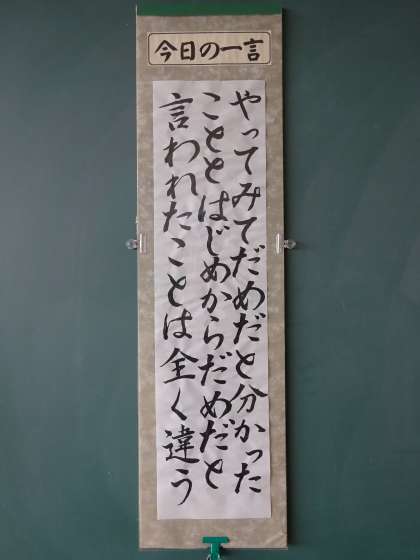 今日の一言
やってみてだめだと分かった
こととはじめからだめだと
言われたことは全く違う